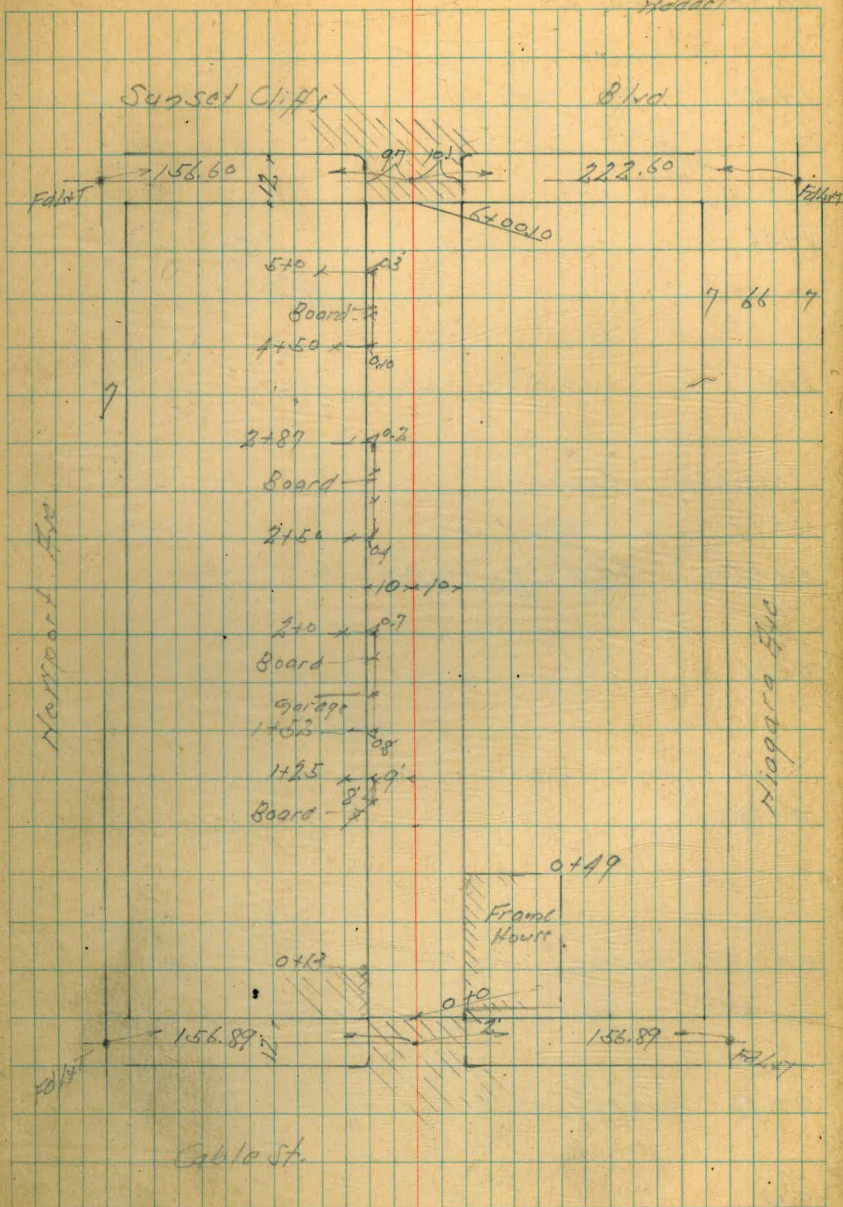 Sunset Cliffs Blvd.
156.60 12' 97 10.1 222.60
Fd L&T Fd L&T
6+00.10
5+0 0.3'
7 66 7
Board
4+50 0.10
7
2+87 0.2
Board
2+50 0.4
10 10
Newport Ave
Niagara Ave
2+0 0.7
Board
Garage
1+52 0.8
1+25 9'
8'
Board
0+49
Frame
House
0+13
0+0
2'
156.89 12' 156.89
Fd L&T Fd L&T
Cable St.